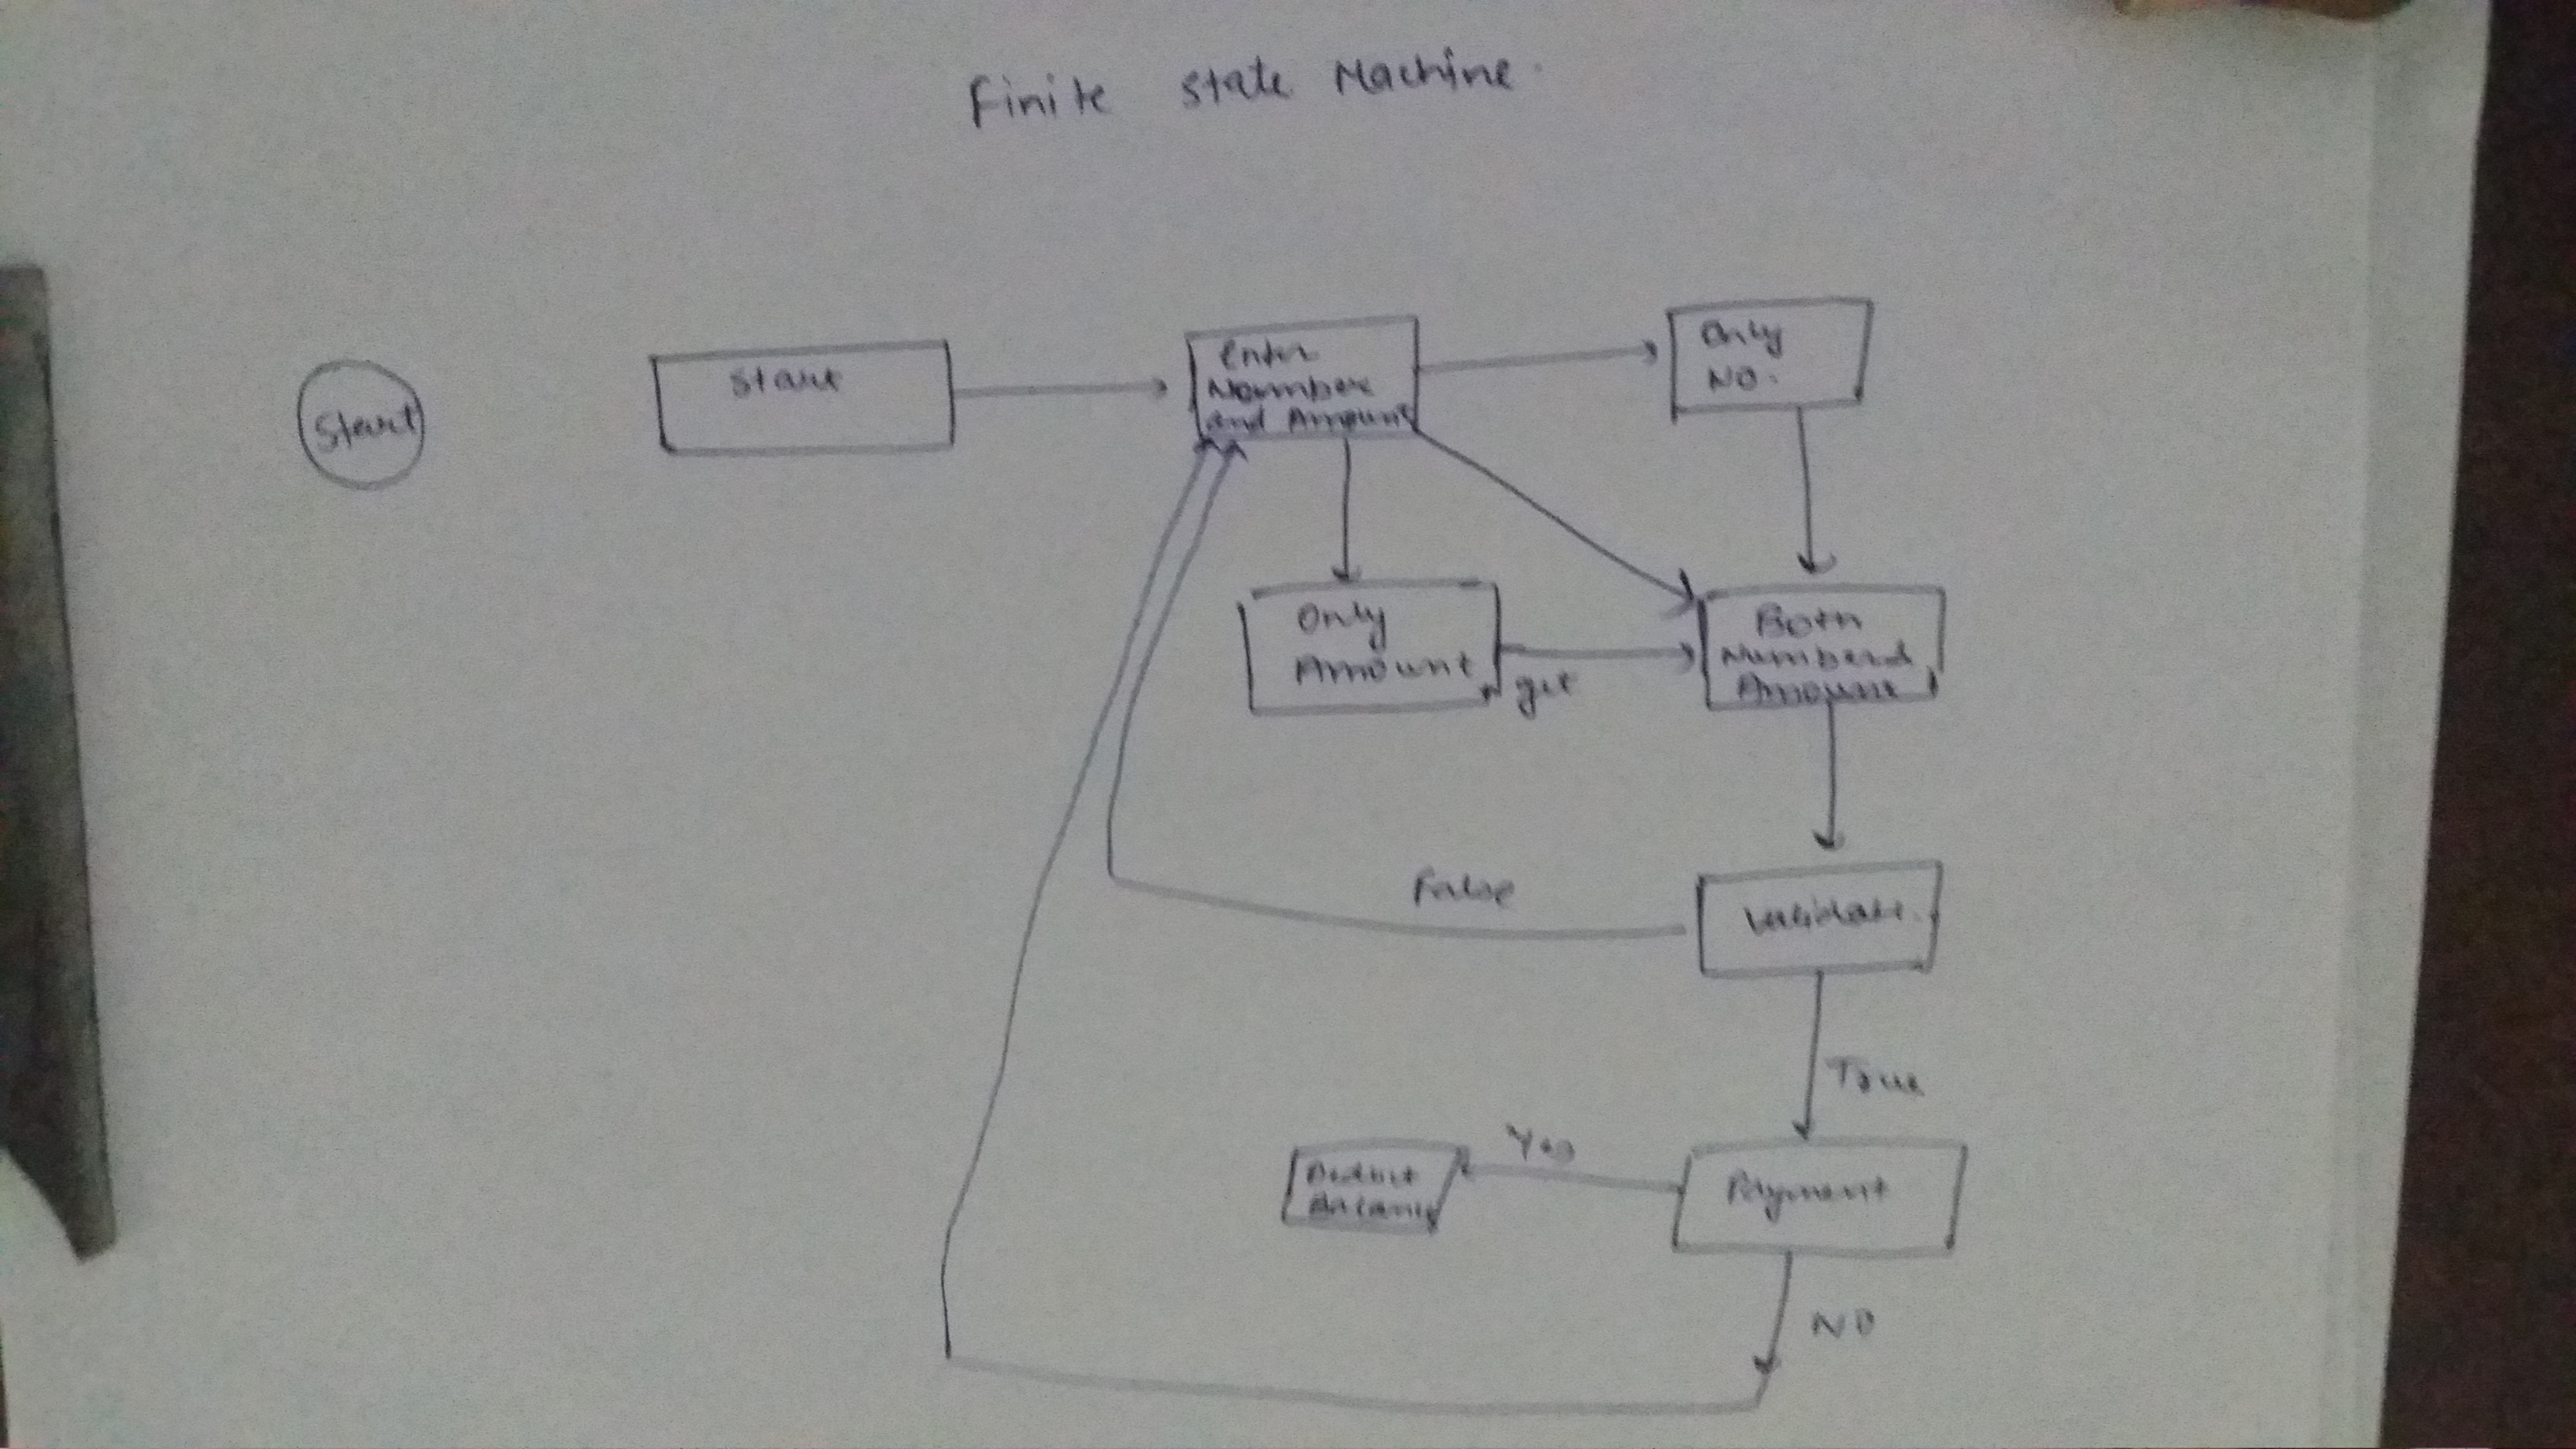 Finite State Machine
Start
Start
Enter
Nomber
and Amount
Only
NO.
Only
Amount
get
Both
Number &
Amount
False
Validate
True
Yes
Payment
Balance
NO